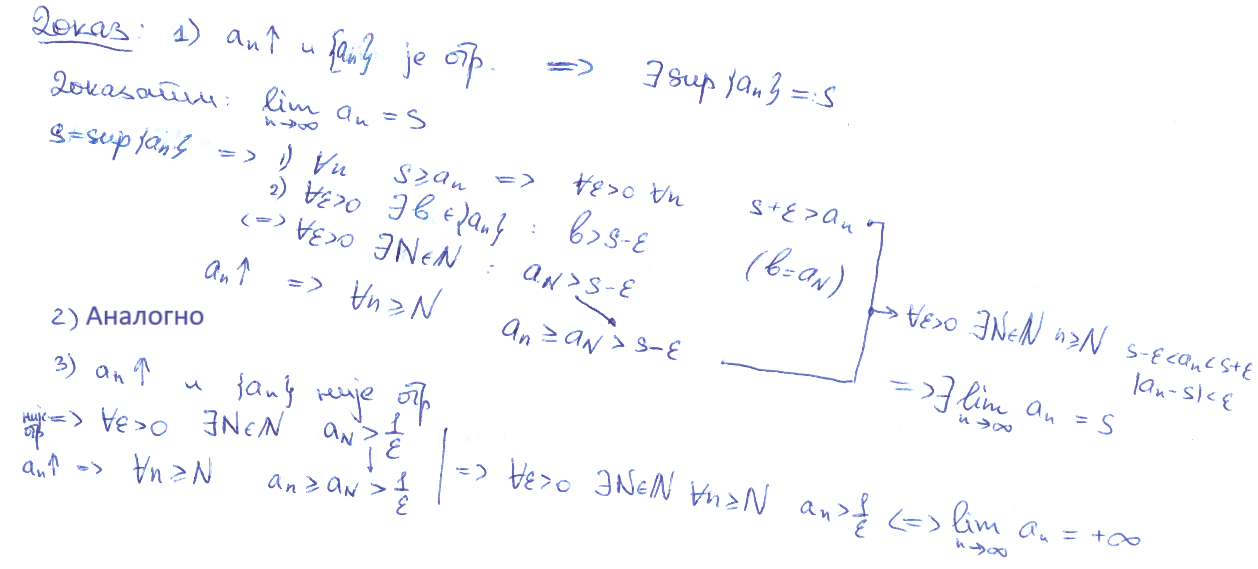 Доказ: 1) aₙ↑ и {aₙ} је огр. => ∃ sup{aₙ} =: S
Доказати: lim n→∞ aₙ = S
S = sup{aₙ} => 1) ∀n S ≥ aₙ => ∀ε>0 ∀n S+ε > aₙ
2) ∀ε>0 ∃b∈{aₙ} : b > S-ε
<=> ∀ε>0 ∃N∈N : a_N > S-ε (b = a_N)
aₙ↑ => ∀n ≥ N aₙ ≥ a_N > S-ε
→ ∀ε>0 ∃N∈N n≥N S-ε < aₙ < S+ε
|aₙ - S| < ε
=> ∃ lim n→∞ aₙ = S
2) Аналогно
3) aₙ↑ и {aₙ} није огр
није огр => ∀ε>0 ∃N∈N a_N > 1/ε
aₙ↑ => ∀n ≥ N aₙ ≥ a_N > 1/ε
=> ∀ε>0 ∃N∈N ∀n≥N aₙ > 1/ε <=> lim n→∞ aₙ = +∞